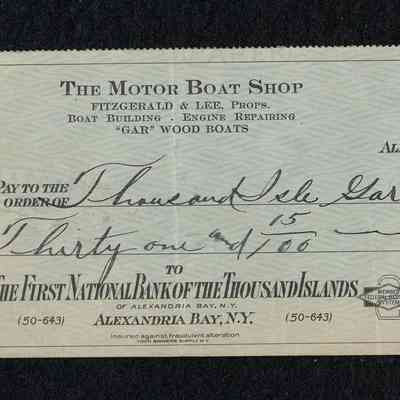 THE MOTOR BOAT SHOP
FITZGERALD & LEE, PROPS.
BOAT BUILDING . ENGINE REPAIRING
"GAR" WOOD BOATS
AL
PAY TO THE
ORDER OF Thousand Isle Gar
Thirty one and 15/100
TO
THE FIRST NATIONAL BANK OF THE THOUSAND ISLANDS
OF ALEXANDRIA BAY, N.Y.
(50-643) ALEXANDRIA BAY, N.Y. (50-643)
insured against fraudulent alteration
MEMBER
FEDERAL RESERVE
SYSTEM